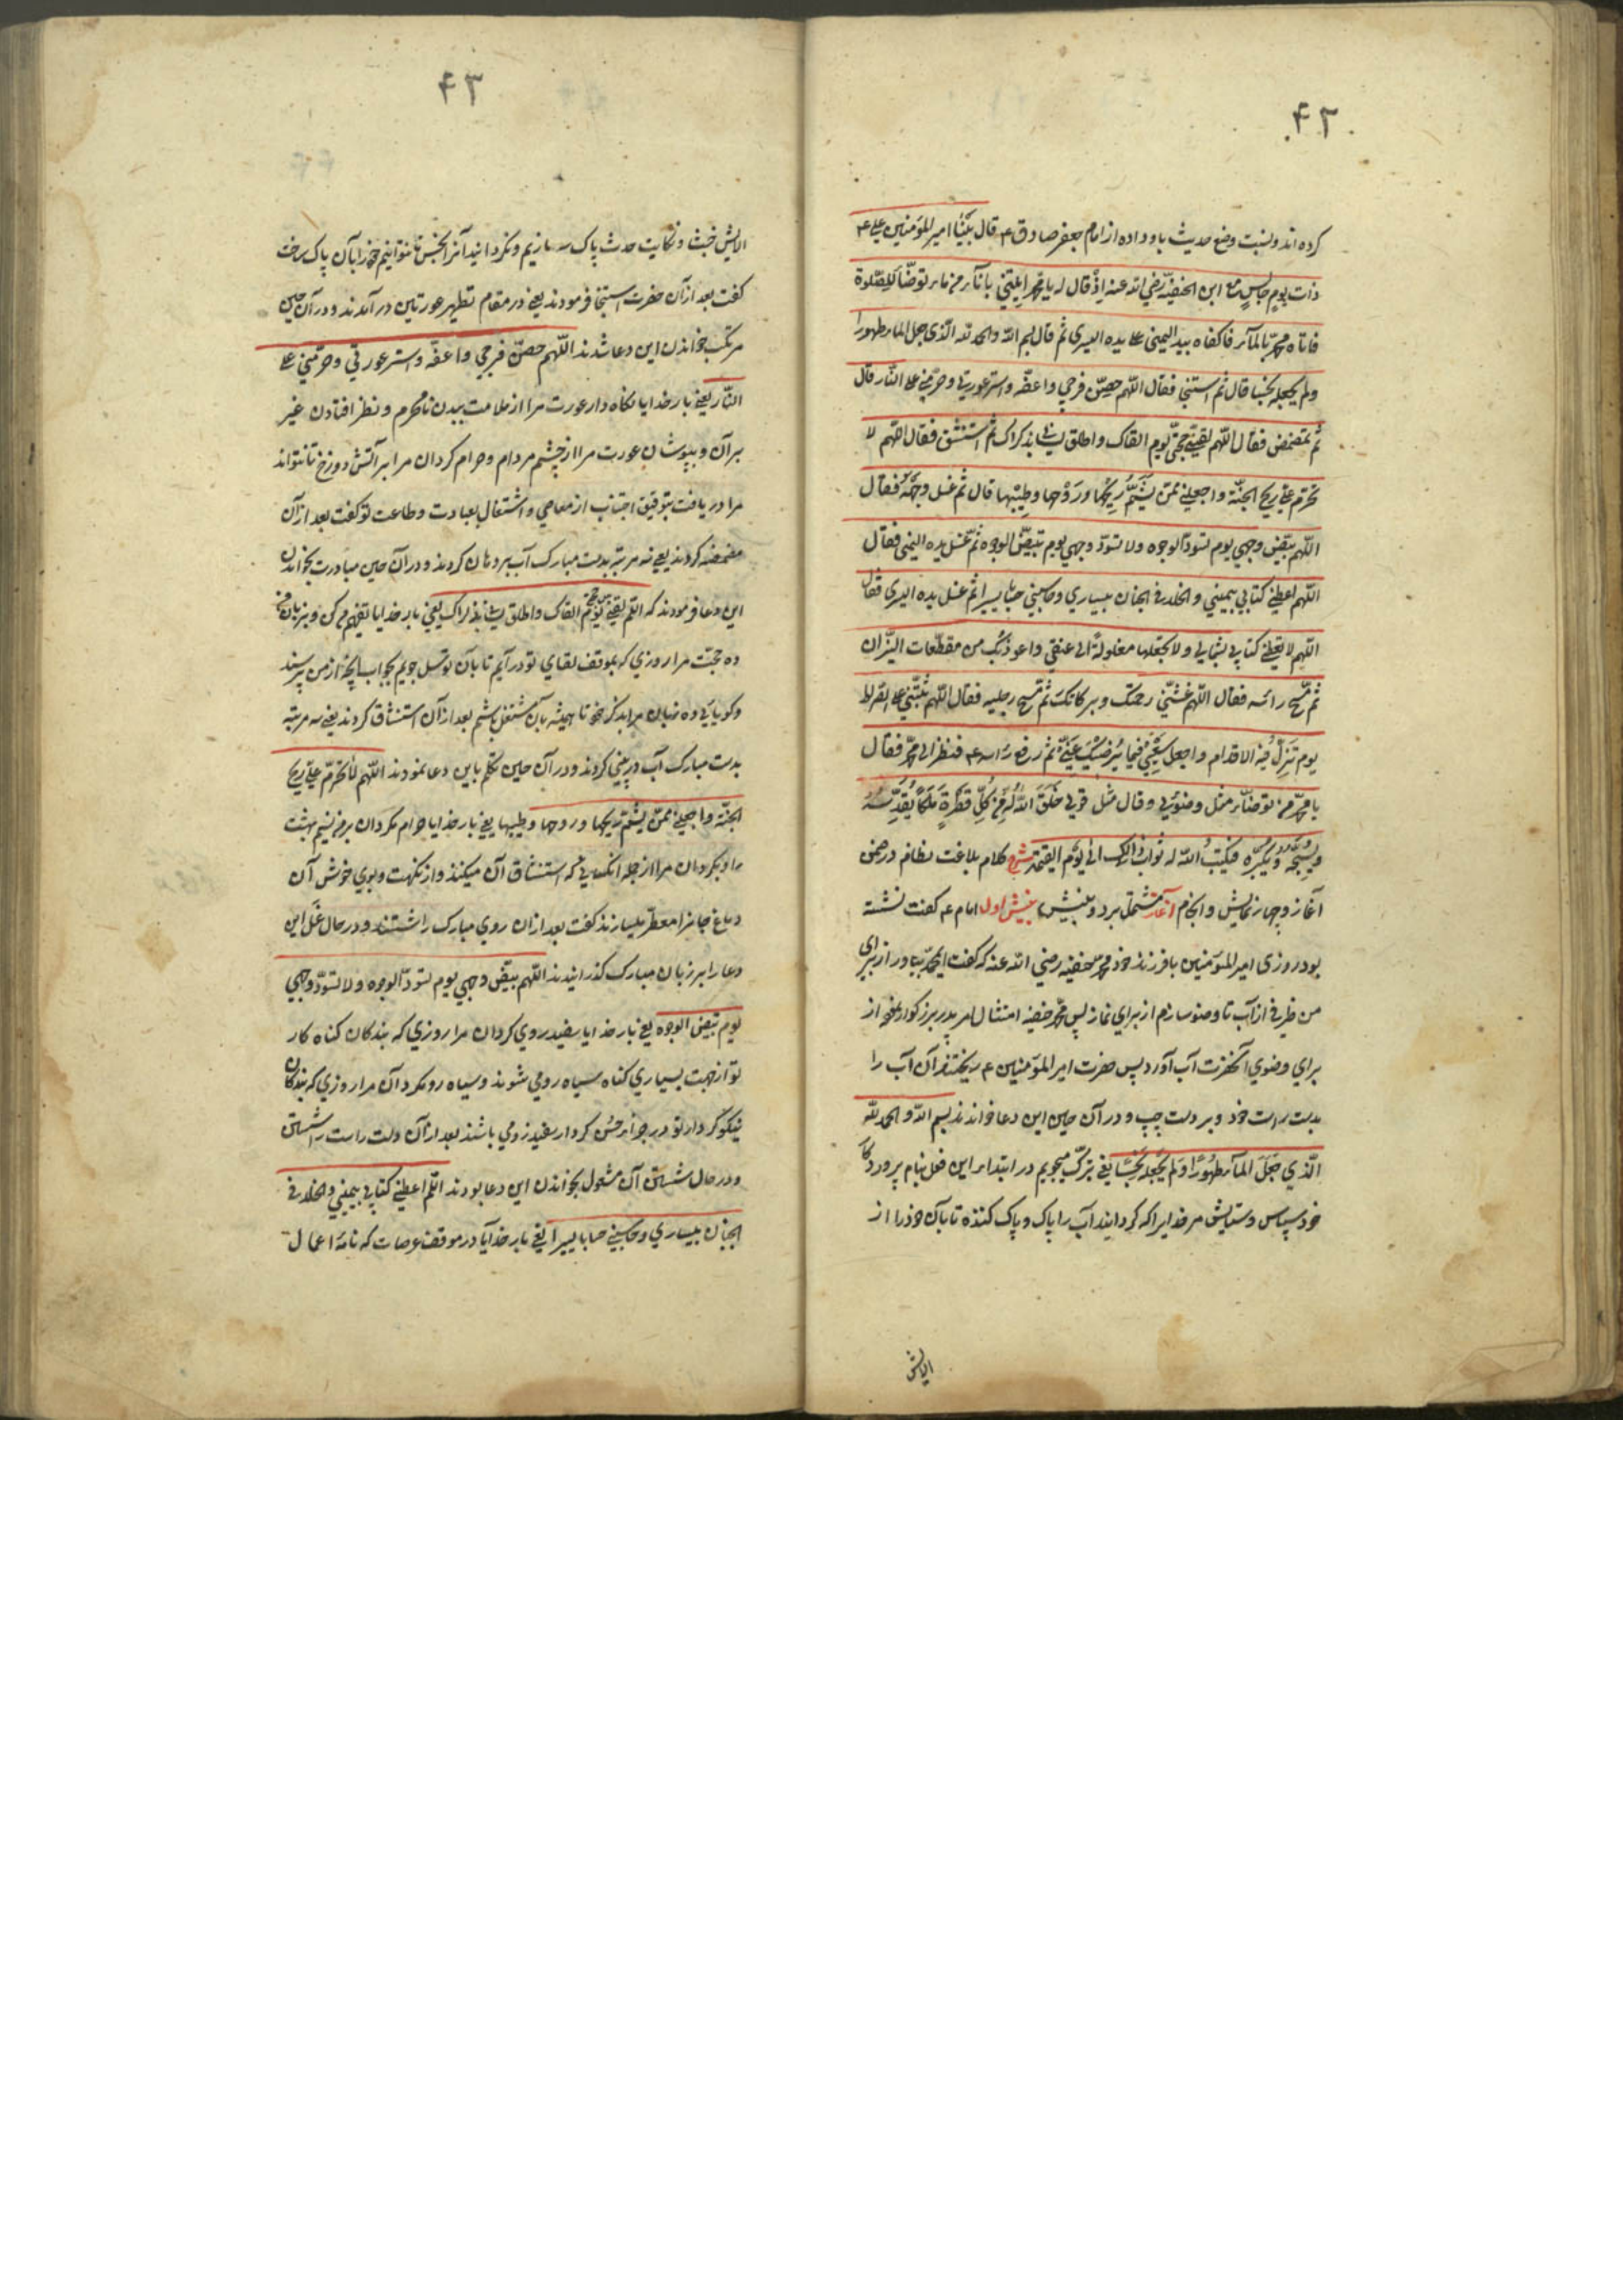 ۴۲
کرده اند ونسبت وضع حدیث باو داده از امام جعفر صادق ع قال بینا امیر المؤمنین علی ع
ذات یوم جالس مع ابن الحنفیة رضی الله عنه اذ قال له یا محمد ایتنی باناء من ماء توضا للصلوة
فاتاه محمد بالماء فاکفاه بید الیمنی علی یده الیسری ثم قال بسم الله والحمد لله الذی جعل الماء طهورا
ولم یجعله نجسا قال ثم استنجا فقال اللهم حصن فرجی واعفه واستر عورتی وحرمنی علی النار قال
ثم تمضمض فقال اللهم لقنی حجتی یوم القاک واطلق لسانی بذکراک ثم استنشق فقال اللهم لا
تحرم علی ریح الجنة واجعلنی ممن یشم ریحها وروحها وطیبها قال ثم غسل وجهه فقال
اللهم بیض وجهی یوم تسود الوجوه ولا تسود وجهی یوم تبیض الوجوه ثم غسل یده الیمنی فقال
اللهم اعطنی کتابی بیمینی والخلد فی الجنان بیساری وحاسبنی حسابا یسیرا ثم غسل یده الیسری فقال
اللهم لا تعطنی کتابی بشمالی ولا تجعلها مغلولة الی عنقی واعوذ بک من مقطعات النیران
ثم مسح راسه فقال اللهم غشنی رحمتک وبرکاتک ثم مسح رجلیه فقال اللهم ثبتنی علی الصراط
یوم تزل فیه الاقدام واجعل سعیی فیما یرضیک عنی ثم رفع راسه ع فنظر الی محمد فقال
یا محمد من توضا مثل وضوئی وقال مثل قولی خلق الله له من کل قطرة ملکا یقدسه
ویسبحه ویکبره فیکتب الله له ثواب ذالک الی یوم القیمة شرح کلام بلاغت نظام در ضمن
آغاز و چهار نمایش وانجام آغاز مشتمل بر دو بینش بینش اول امام ع کفت نشسته
بود روزی امیر المؤمنین با فرزند خود محمد حنفیه رضی الله عنه که کفت ای محمد بیاور از برای
من ظرفی از آب تا وضو سازم از برای نماز پس محمد حنفیه امتثال امر پدر بزرکوار نموده از
برای وضوی آنحضرت آب آورد پس حضرت امیر المؤمنین ع ریختند آن آب را
بدست راست خود وبر دست چپ ودر آن حین این دعا خواندند بسم الله والحمد لله
الذی جعل الماء طهورا ولم یجعله نجسا یعنی تبرک میجویم در ابتداء این فعل بنام پروردکار
خود سپاس وستایش مر خدایرا که کردانید آب را پاک وپاک کننده تا بآن خود را از
الایش
۴۳
الایش خبث ونکایت حدث پاک سازیم ونکردانید آنرا نجس تا نتوانیم خود را بآن پاک ساخت
کفت بعد از آن حضرت استنجا فرمودند یعنی در مقام تطهیر عورتین در آمدند ودر آن حین
مرتکب خواندن این دعا شدند اللهم حصن فرجی واعفه واستر عورتی وحرمنی علی
النار یعنی بار خدایا نکاه دار عورت مرا از ملامت بیدن نامحرم ونظر افتادن غیر
بر آن وبپوشان عورت مرا از چشم مردم وحرام کردان مرا بر آتش دوزخ تا نتواند
مرا دریافت بتوفیق اجتناب از معاصی واشتغال بعبادت وطاعت تو کفت بعد از آن
مضمضه کردند یعنی سه مرتبه بدست مبارک آب بر دهان کردند ودر آن حین مبادرت بخواندن
این دعا فرمودند که اللهم لقنی حجتی یوم القاک واطلق لسانی بذکراک یعنی بار خدایا تفهیم من کن وبزبان من
ده حجت مرا روزی که بموقف لقای تو در آیم تا بآن توسل جویم بجواب انچه از من پرسند
وکویایی ده زبان مرا بذکر خود تا همیشه بآن مشتغل باشم بعد از آن استنشاق کردند یعنی سه مرتبه
بدست مبارک آب در بینی کردند ودر آن حین تکلم باین دعا نمودند اللهم لا تحرم علی ریح
الجنة واجعلنی ممن یشم ریحها وروحها وطیبها یعنی بار خدایا حرام مکردان بر من نسیم بهشت
را وبکردان مرا از جمله انکسانی که استنشاق آن میکنند واز نکهت وبوی خوش آن
دماغ جانرا معطر میسازند کفت بعد از آن روی مبارک را شستند ودر حال غسل این
دعا را بر زبان مبارک کذرانیدند اللهم بیض وجهی یوم تسود الوجوه ولا تسود وجهی
یوم تبیض الوجوه یعنی بار خدایا سفید روی کردان مرا روزی که بندکان کناه کار
تو از جهت بسیاری کناه سیاه روی شوند وسیاه رو مکردان مرا روزی که بندکان
نیکو کردار تو در جزاء حسن کردار سفید روی باشند بعد از آن دست راست را شستن
ودر حال شستن آن مشغول بخواندن این دعا بودند اللهم اعطنی کتابی بیمینی والخلد فی
الجنان بیساری وحاسبنی حسابا یسیرا یعنی بار خدایا در موقف عرصات که نامهٔ اعمال